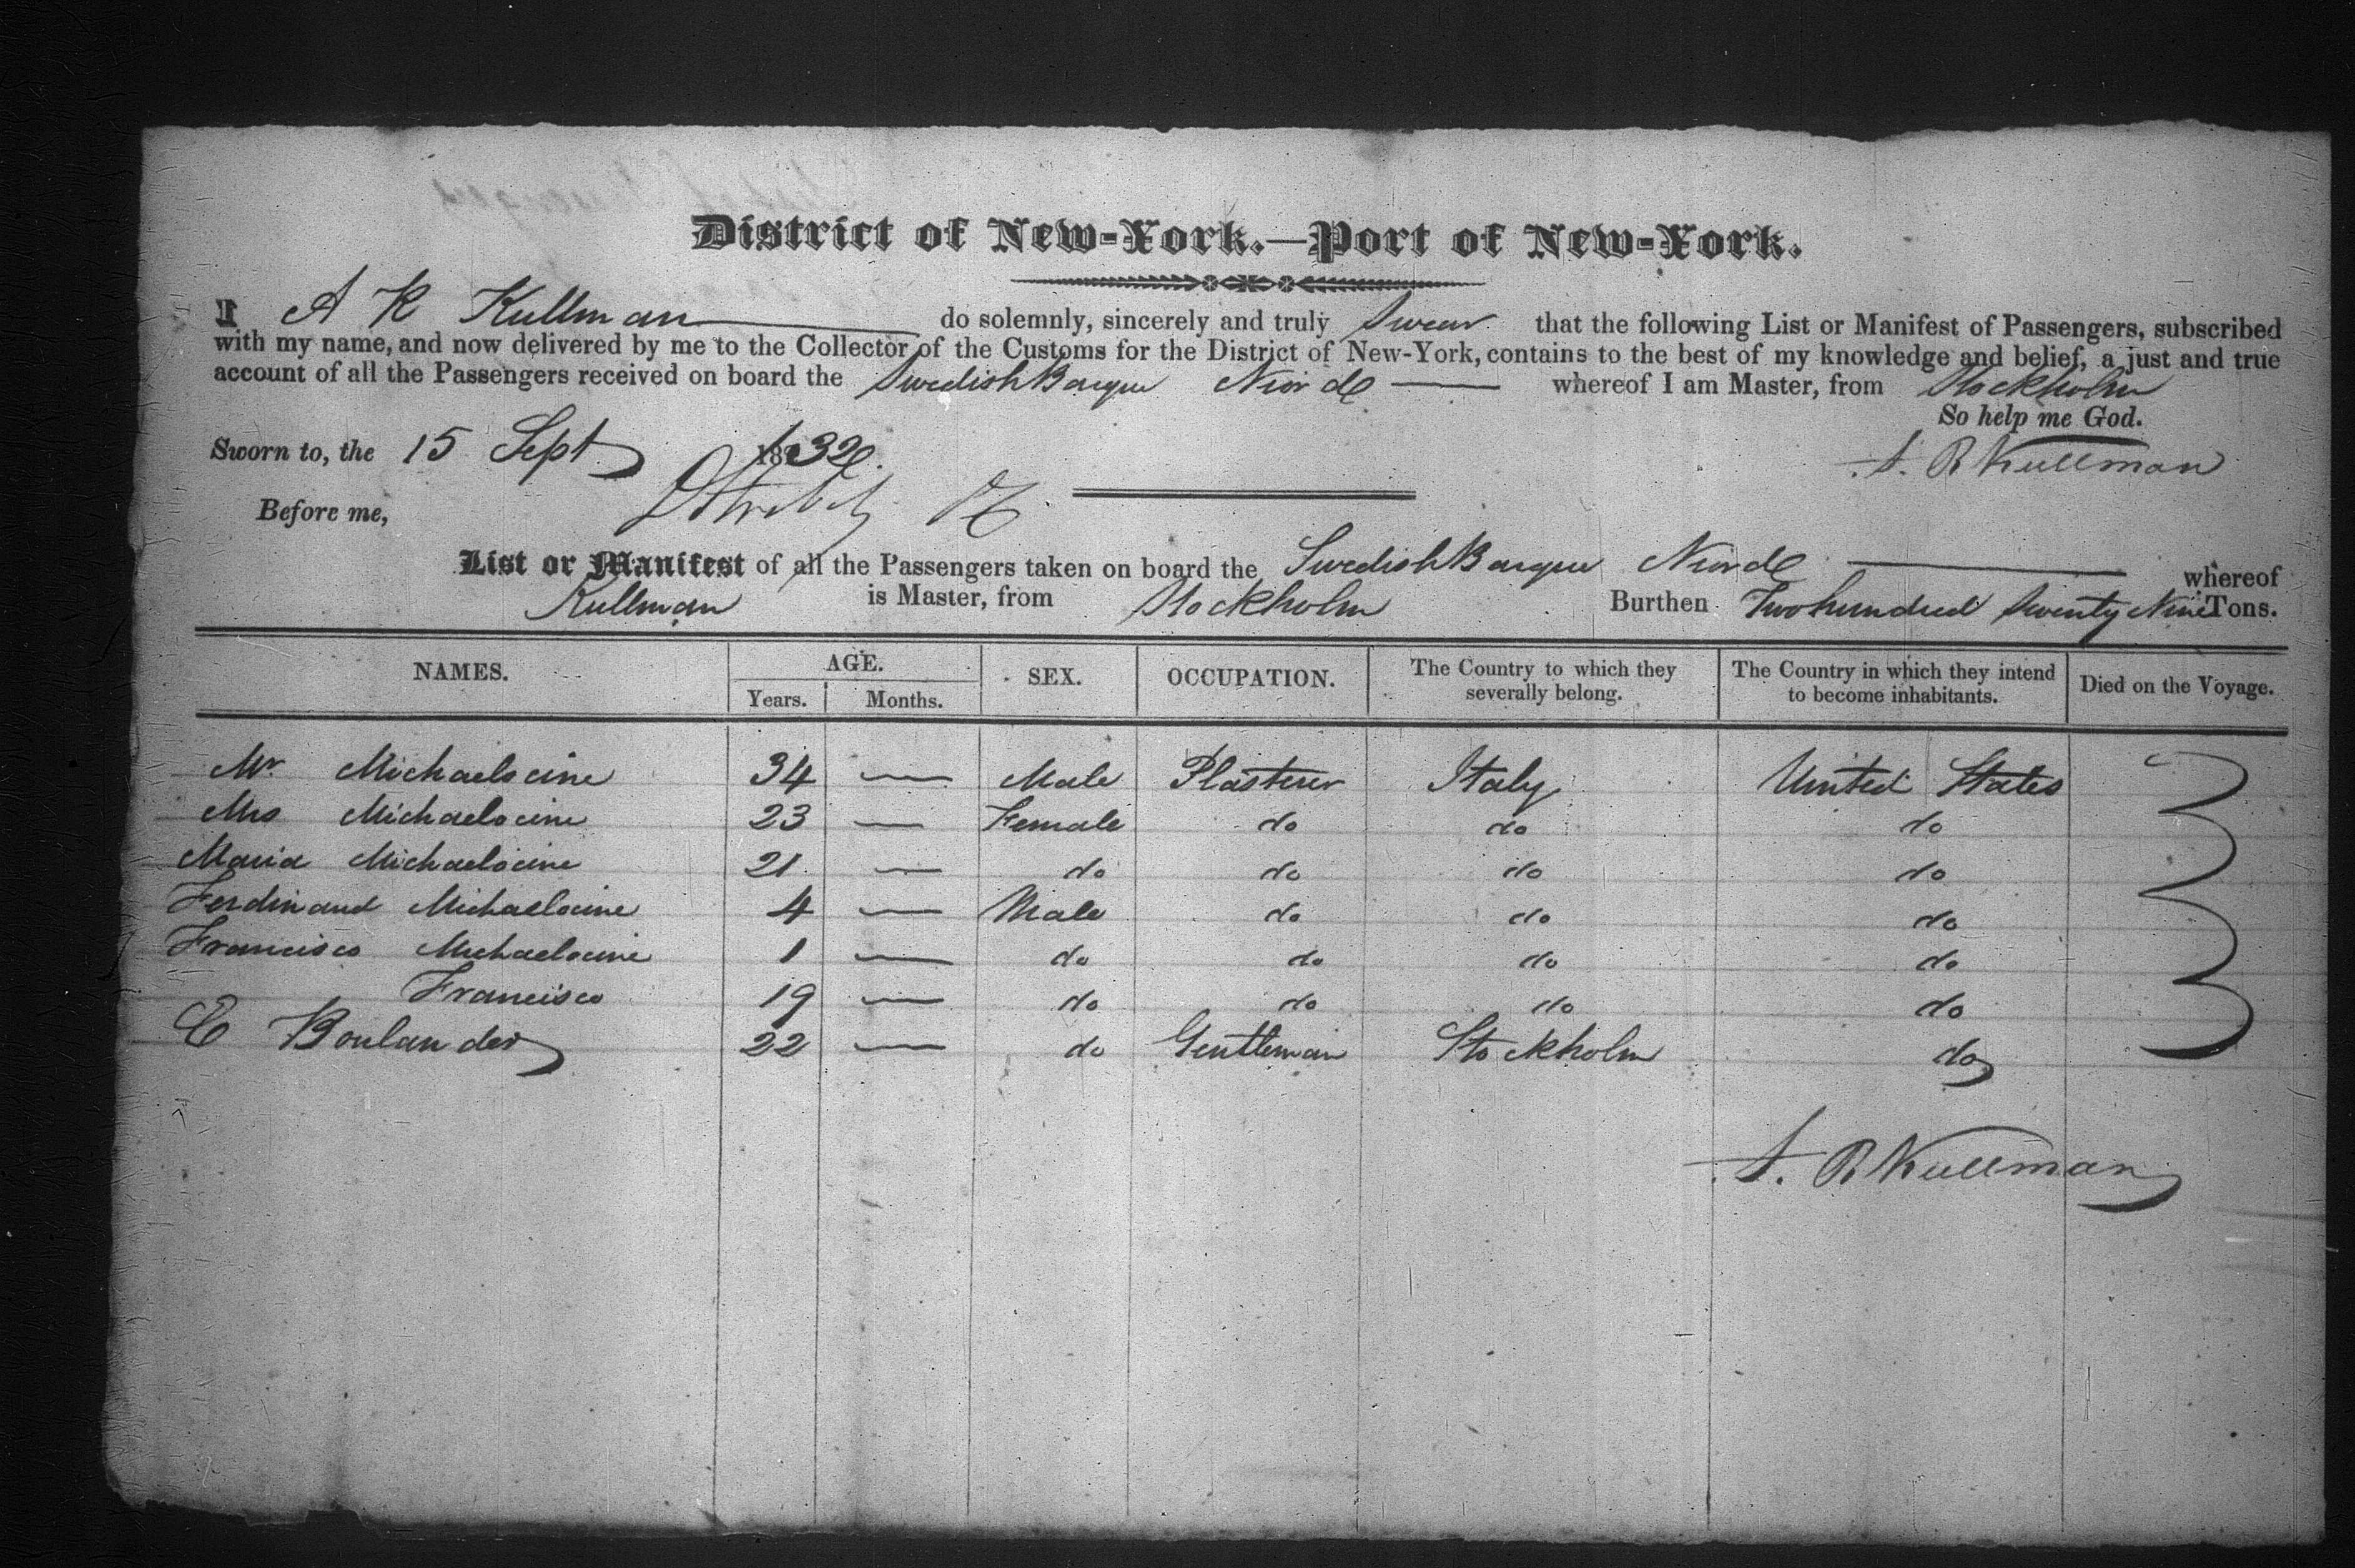 District of New-York.—Port of New-York.
I A R Kullman do solemnly, sincerely and truly Swear that the following List or Manifest of Passengers, subscribed
with my name, and now delivered by me to the Collector of the Customs for the District of New-York, contains to the best of my knowledge and belief, a just and true
account of all the Passengers received on board the Swedish Barque whereof I am Master, from Stockholm
So help me God.
Sworn to, the 15 Sept 1832. A. R Kullman
Before me,
List or Manifest of all the Passengers taken on board the Swedish Barque whereof
Kullman is Master, from Stockholm Burthen Two hundred twenty Nine Tons.
NAMES. AGE. Years. Months. SEX. OCCUPATION. The Country to which they severally belong. The Country in which they intend to become inhabitants. Died on the Voyage.
Mr. Michaelocine 34 — Male Plasterer Italy United States
Mrs Michaelocine 23 — Female do do do
Maria Michaelocine 21 — do do do do
Ferdinand Michaelocine 4 — Male do do do
Francisco Michaelocine 1 — do do do do
Francisco 19 — do do do do
C Boulander 22 — do Gentleman Stockholm do
A. R Kullman